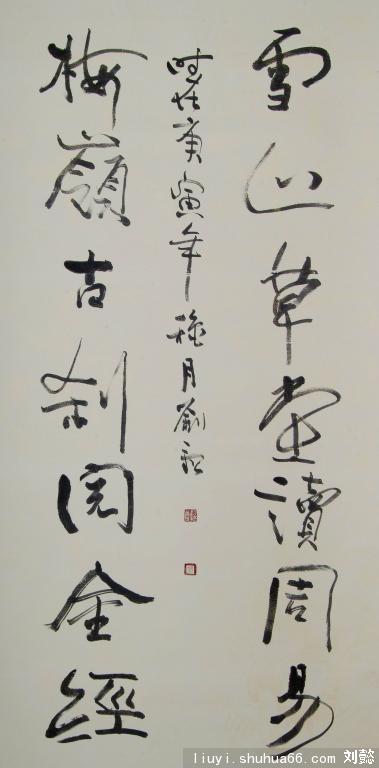 雪山草堂讀周易
時在庚寅年 月劉懿
梅嶺古刹閱金經
liuyi.shuhua66.com 刘懿